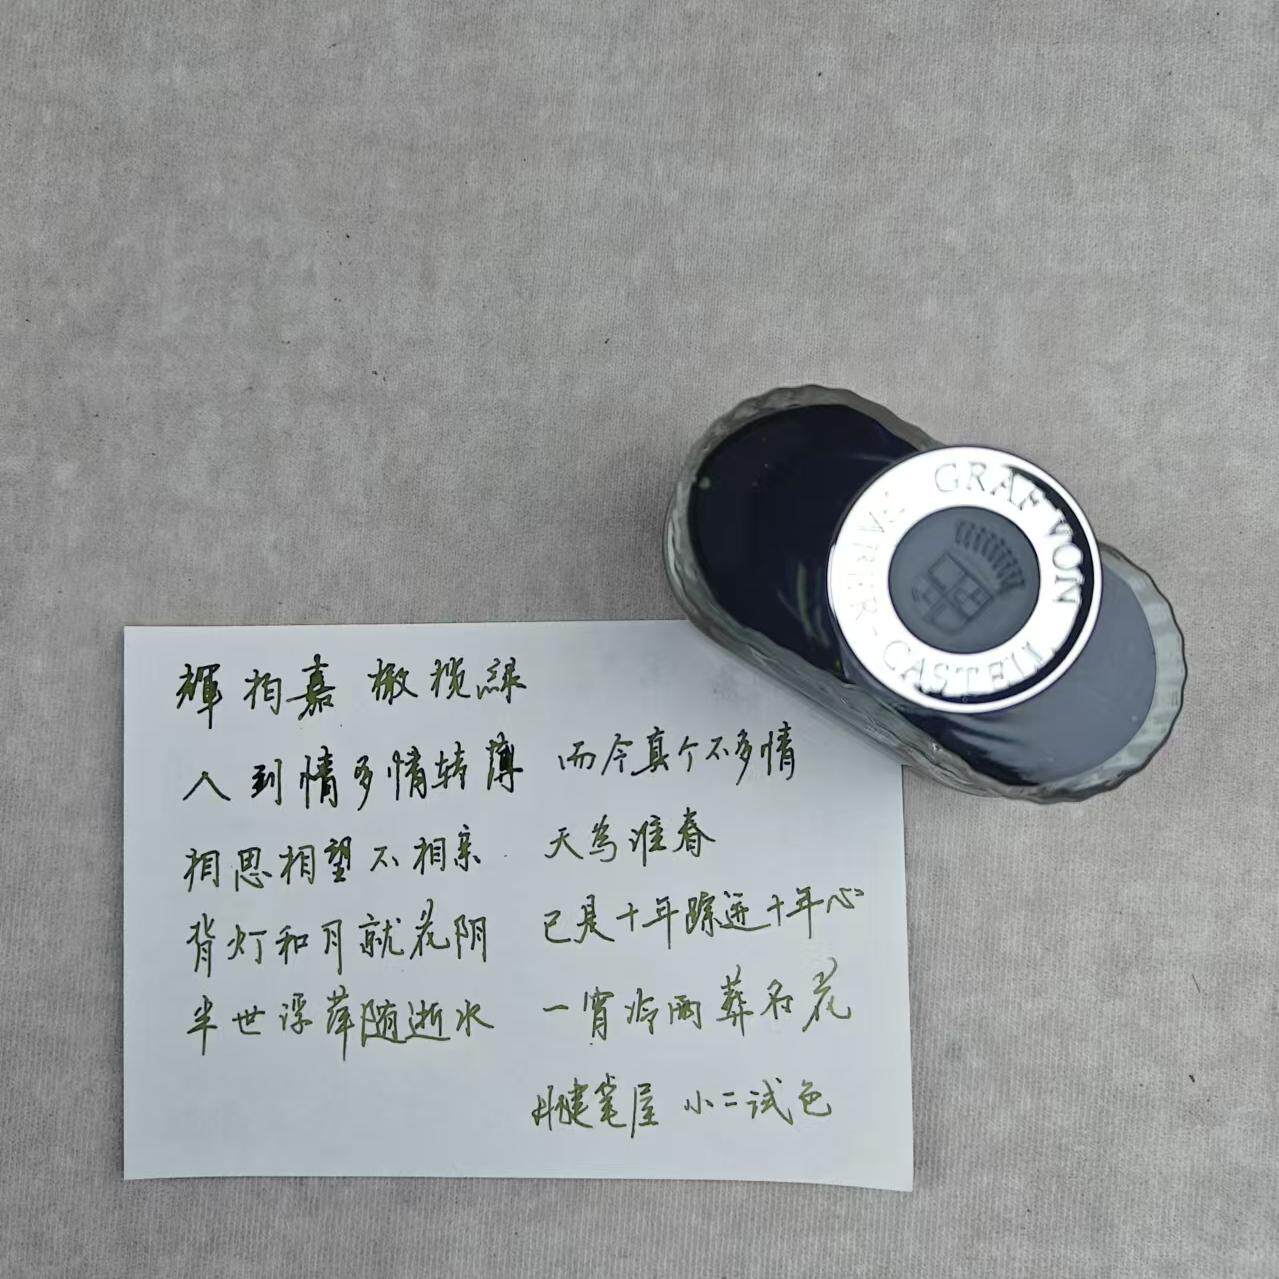 輝柏嘉 橄榄緑
人到情多情转薄 而今真个不多情
相思相望不相亲 天為谁春
背灯和月就花阴 已是十年踪迹十年心
半世浮萍随逝水 一宵冷雨葬名花
健笔屋 小二试色
GRAF VON FABER-CASTELL